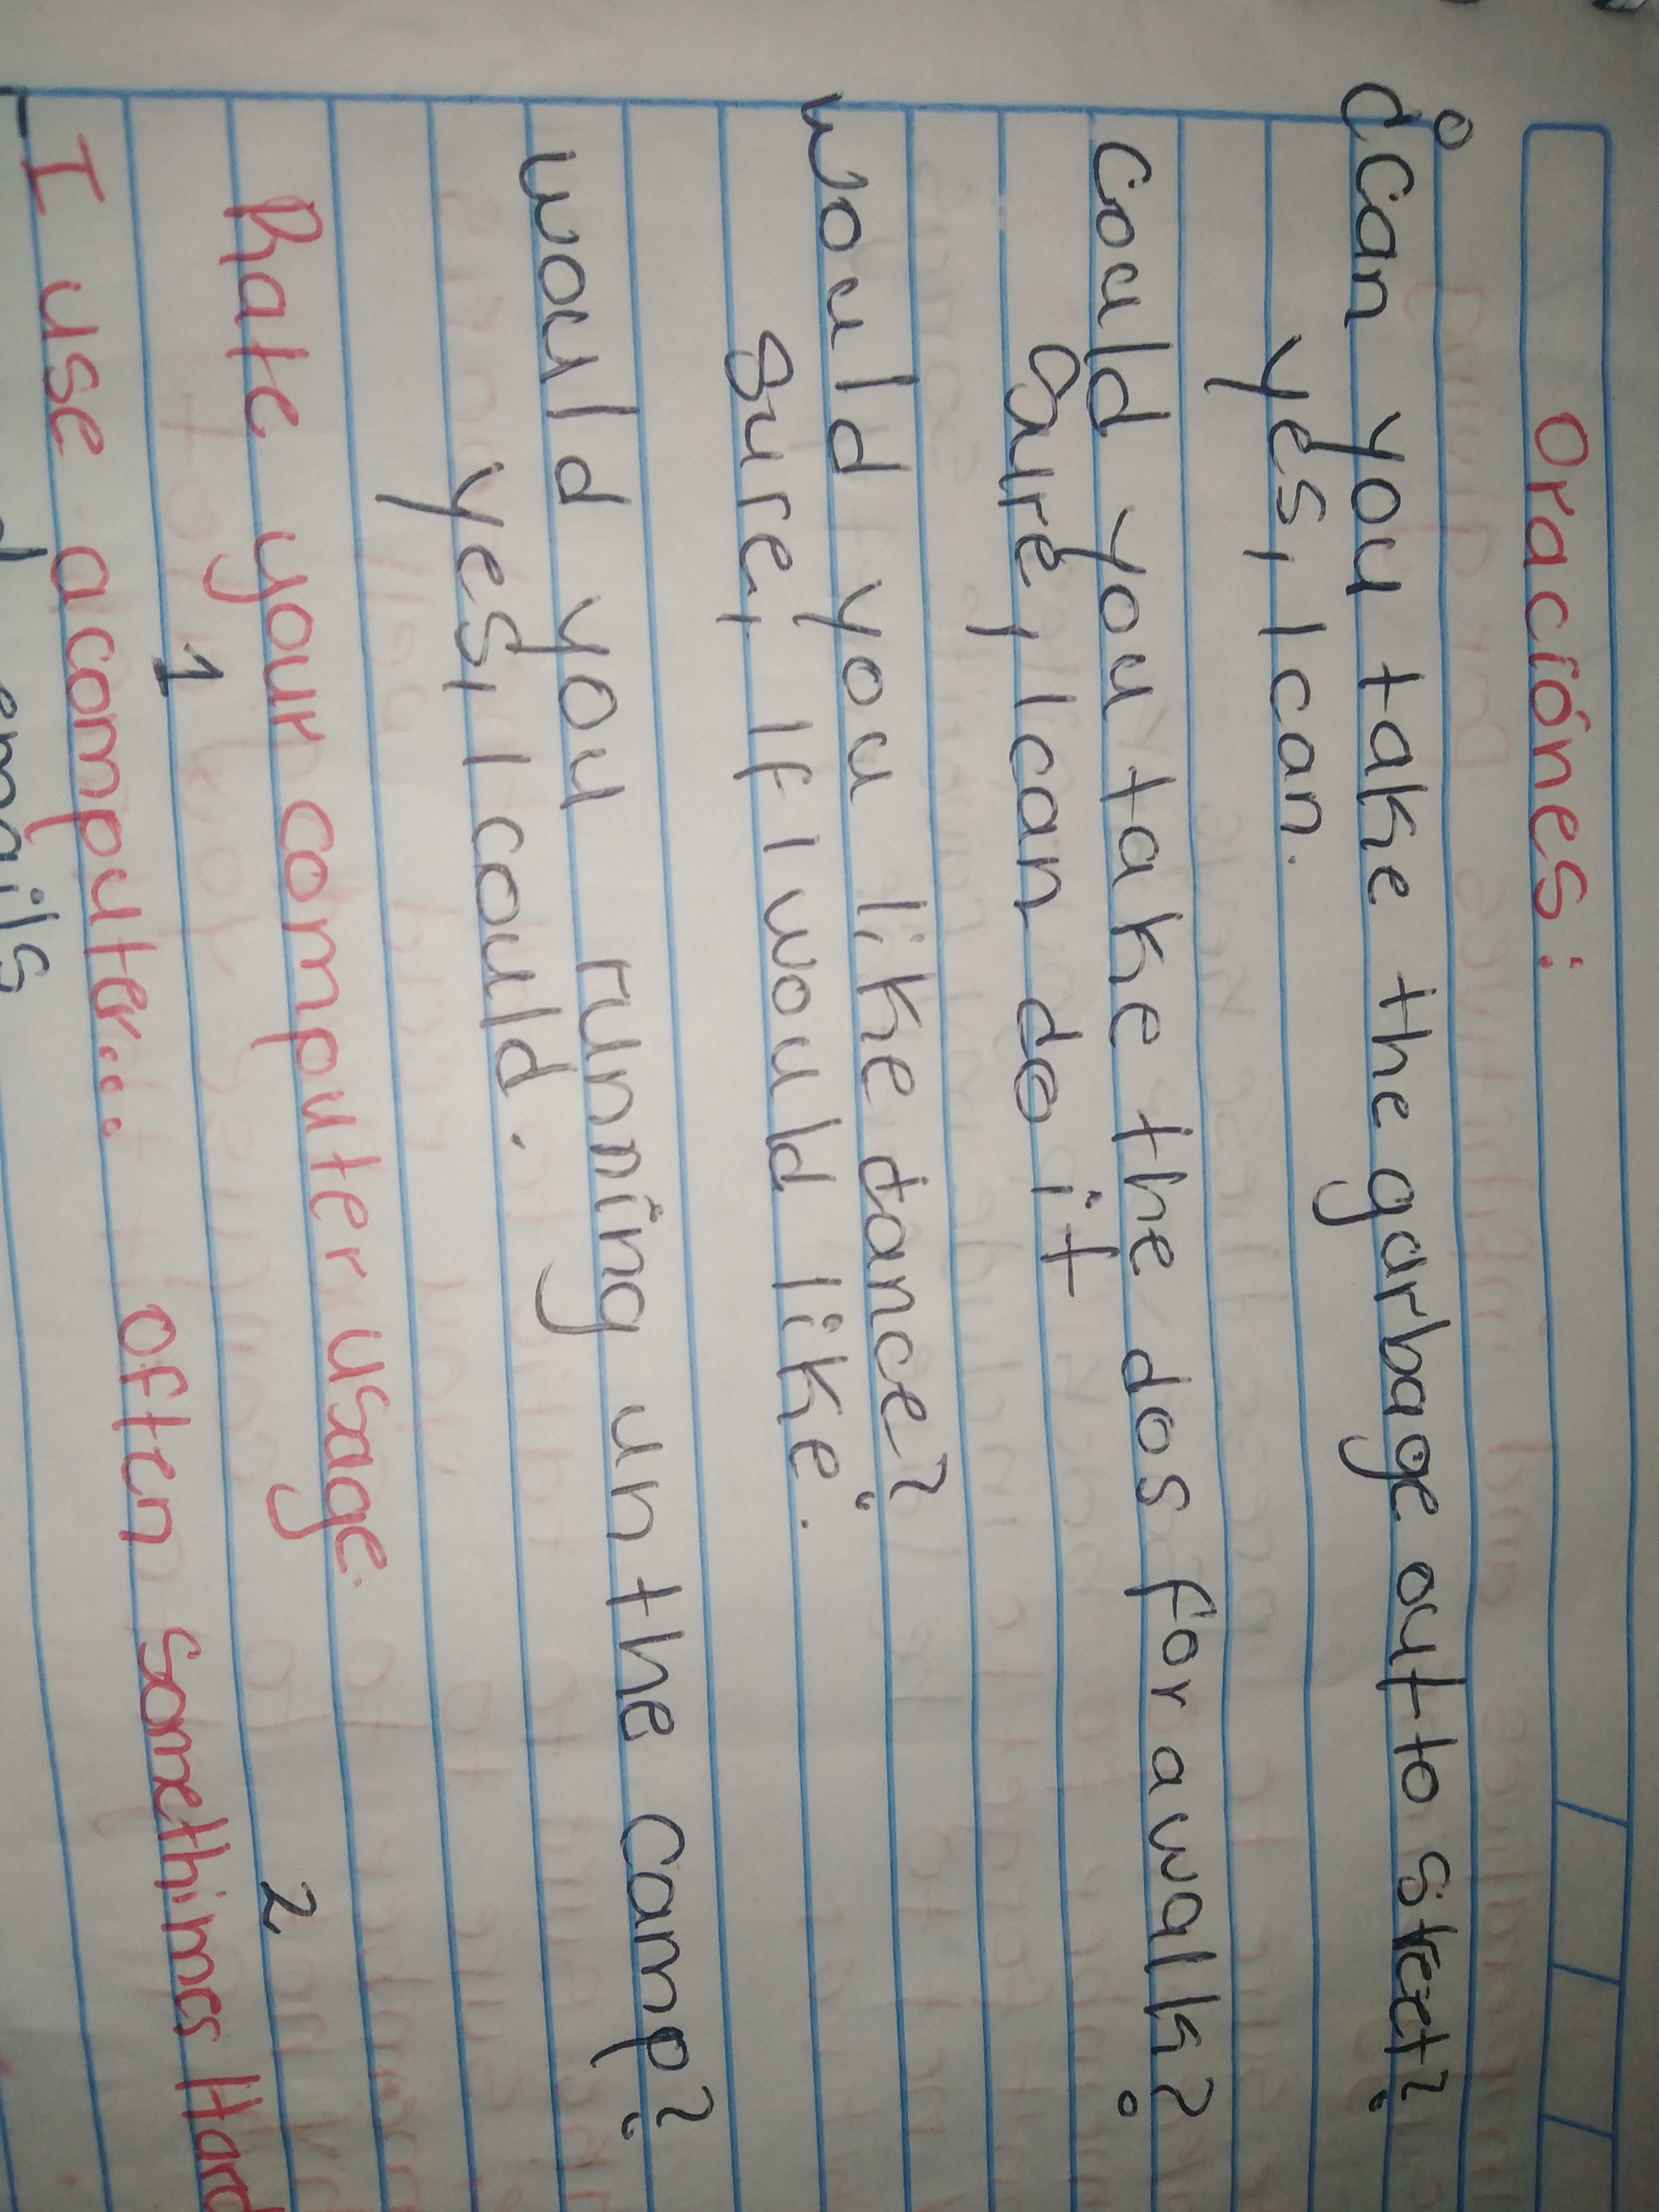 Oraciónes:
¿can you take the garbage out to street?
yes, I can.
could you take the dos for a walk?
sure, I can do it
would you like dance?
sure, If I would like.
would you running un the camp?
yes, I could.
Rate your computer usage.
1 2
I use a computer... often somethimes Hard
emails